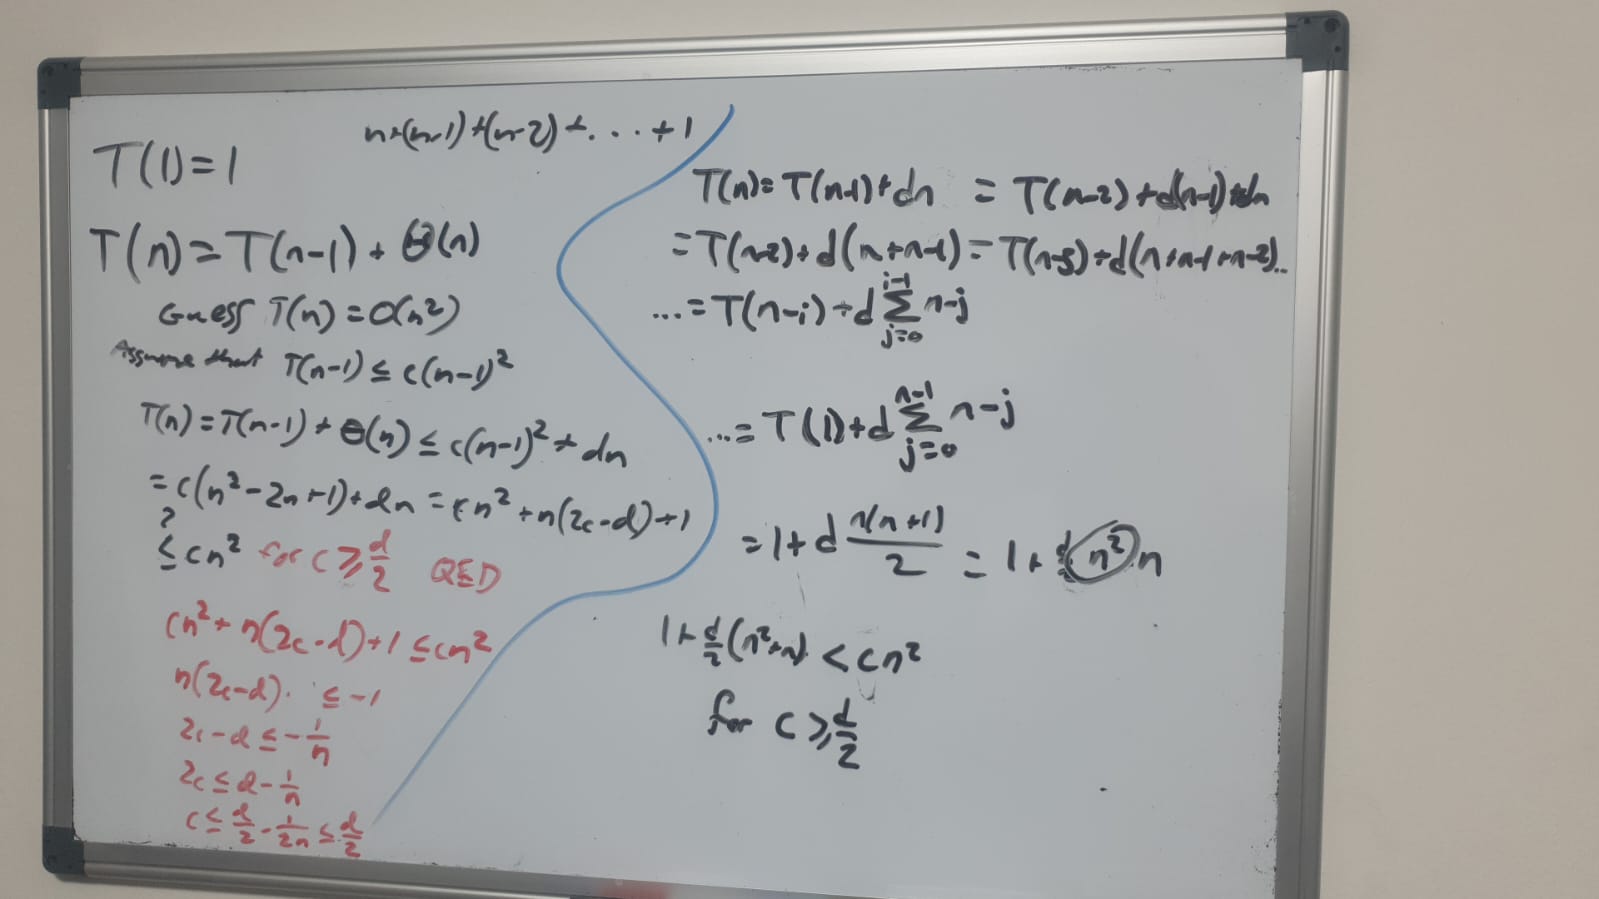 n+(n-1)+(n-2)+...+1
T(1)=1
T(n)=T(n-1)+Θ(n)
Guess T(n)=O(n²)
Assume that T(n-1)≤c(n-1)²
T(n)=T(n-1)+Θ(n)≤c(n-1)²+dn
=c(n²-2n+1)+dn=cn²+n(2c-d)+1
?
≤cn² for c≥d/2 QED
cn²+n(2c-d)+1≤cn²
n(2c-d) ≤-1
2c-d≤-1/n
2c≤d-1/n
c≤d/2-1/2n≤d/2
T(n)=T(n-1)+dn =T(n-2)+d(n-1)+dn
=T(n-2)+d(n+n-1)=T(n-3)+d(n+n-1+n-2)..
...=T(n-i)+d∑_{j=0}^{i-1} n-j
...=T(1)+d∑_{j=0}^{n-1} n-j
=1+d n(n+1)/2 =1+ n² n
1+d/2(n²+n)<cn²
for c≥d/2